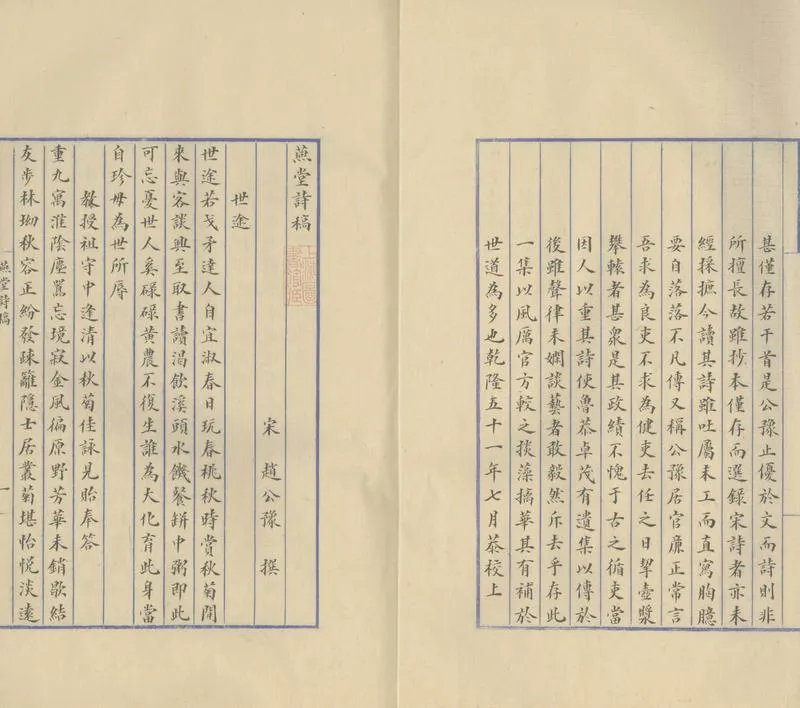 甚僅存若干首是公豫止優於文而詩則非
所擅長故雖抄本僅存而選錄宋詩者亦未
經採摭今讀其詩雖吐屬未工而直寫胸臆
要自落落不凡傳又稱公豫居官廉正常言
吾求為良吏不求為健吏去任之日挈壺漿
攀轅者甚衆是其政績不愧于古之循吏當
因人以重其詩使魯恭卓茂有遺集以傳於
後雖聲律未嫺談藝者敢毅然斥去乎存此
一集以風厲官方較之掞藻摛華其有補於
世道為多也乾隆五十一年七月恭校上
燕堂詩稿
宋 趙公豫 撰
世途
世途若戈矛達人自宜淑春日玩春桃秋時賞秋菊閒
來與客談興至取書讀渴飲溪頭水饑餐缾中粥即此
可忘憂世人奚碌碌黃農不復生誰為大化育此身當
自珍毋為世所辱
教授祖守中逢清以秋菊佳詠見貽奉答
重九寓淮陰塵罵忘境寂金風徧原野芳華未銷歇結
友步林坳秋容正紛發疎籬隱士居叢菊堪怡悅淡遠
燕堂詩稿
一